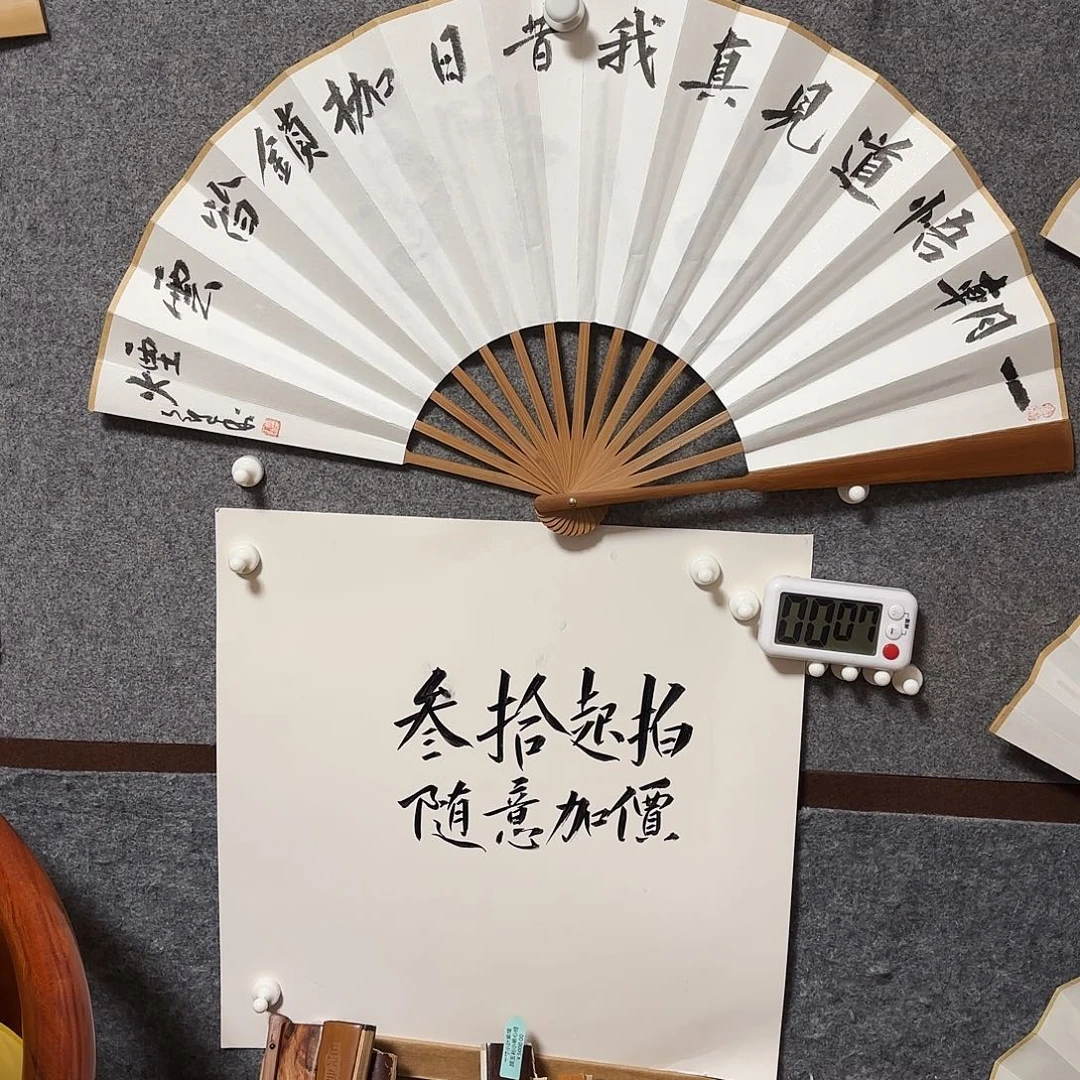 一朝悟道見真我昔日枷鎖皆雲煙
00 07
叁拾起拍
隨意加價